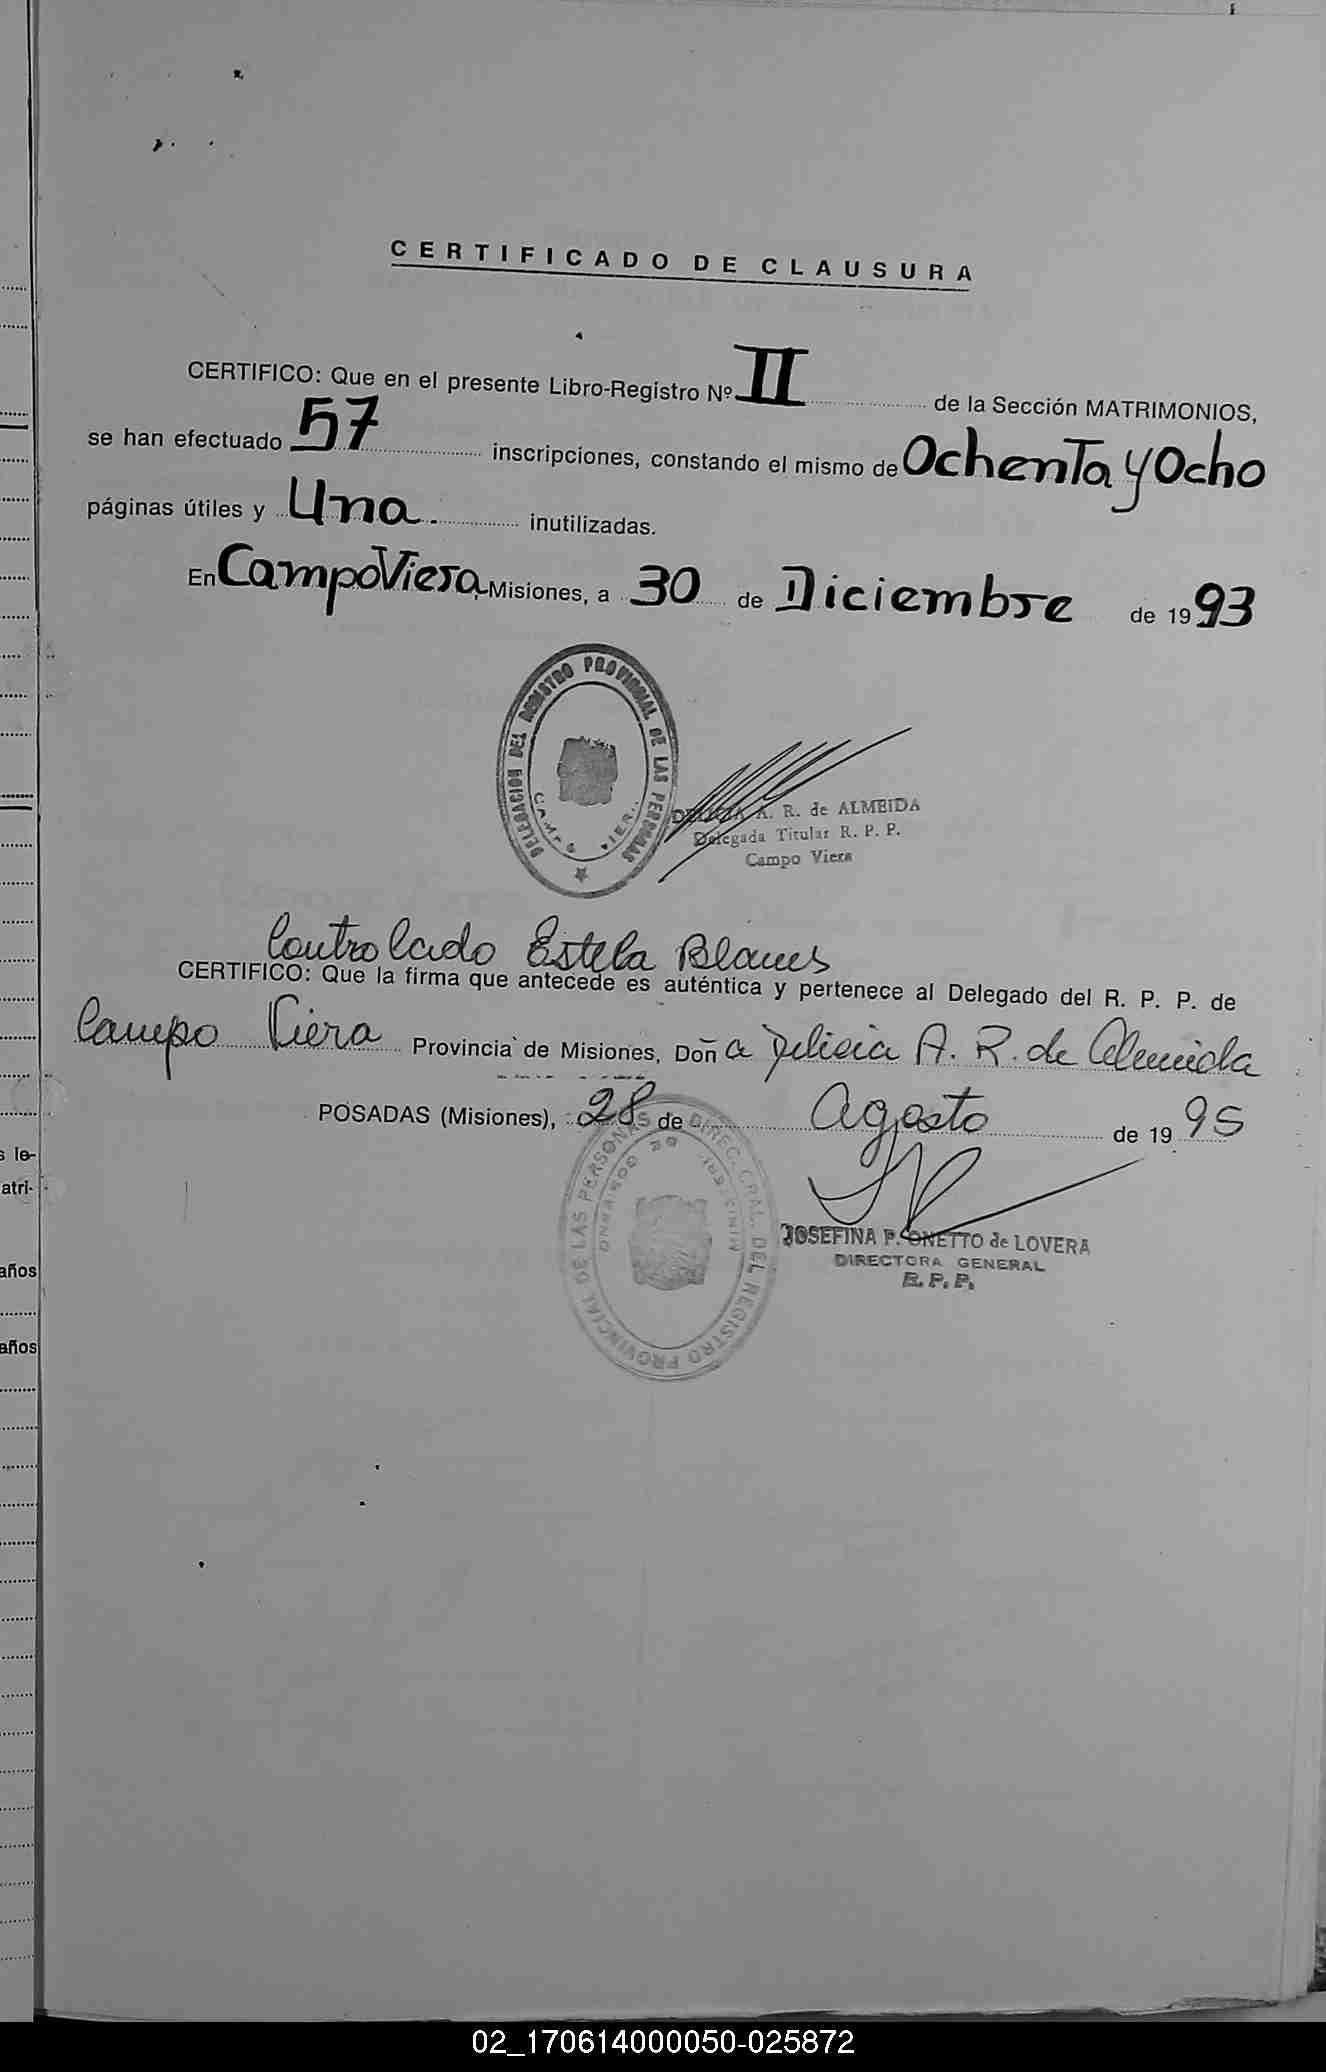 CERTIFICADO DE CLAUSURA
CERTIFICO: Que en el presente Libro-Registro Nº II de la Sección MATRIMONIOS,
se han efectuado 57 inscripciones, constando el mismo de Ochenta y Ocho
páginas útiles y Una inutilizadas.
En Campo Viera, Misiones, a 30 de Diciembre de 1993
DELEGACION DEL REGISTRO PROVINCIAL DE LAS PERSONAS
A. R. de ALMEIDA
Delegada Titular R. P. P.
Campo Viera
Controlado Estela Blanes
CERTIFICO: Que la firma que antecede es auténtica y pertenece al Delegado del R. P. P. de
Campo Viera Provincia de Misiones, Doña Delicia A. R. de Almeida
POSADAS (Misiones), 28 de Agosto de 1995
DIREC. GRAL. DEL REGISTRO PROVINCIAL DE LAS PERSONAS
JOSEFINA P. ONETTO de LOVERA
DIRECTORA GENERAL
R. P. P.
s le-
atri-
años
años
02_170614000050-025872